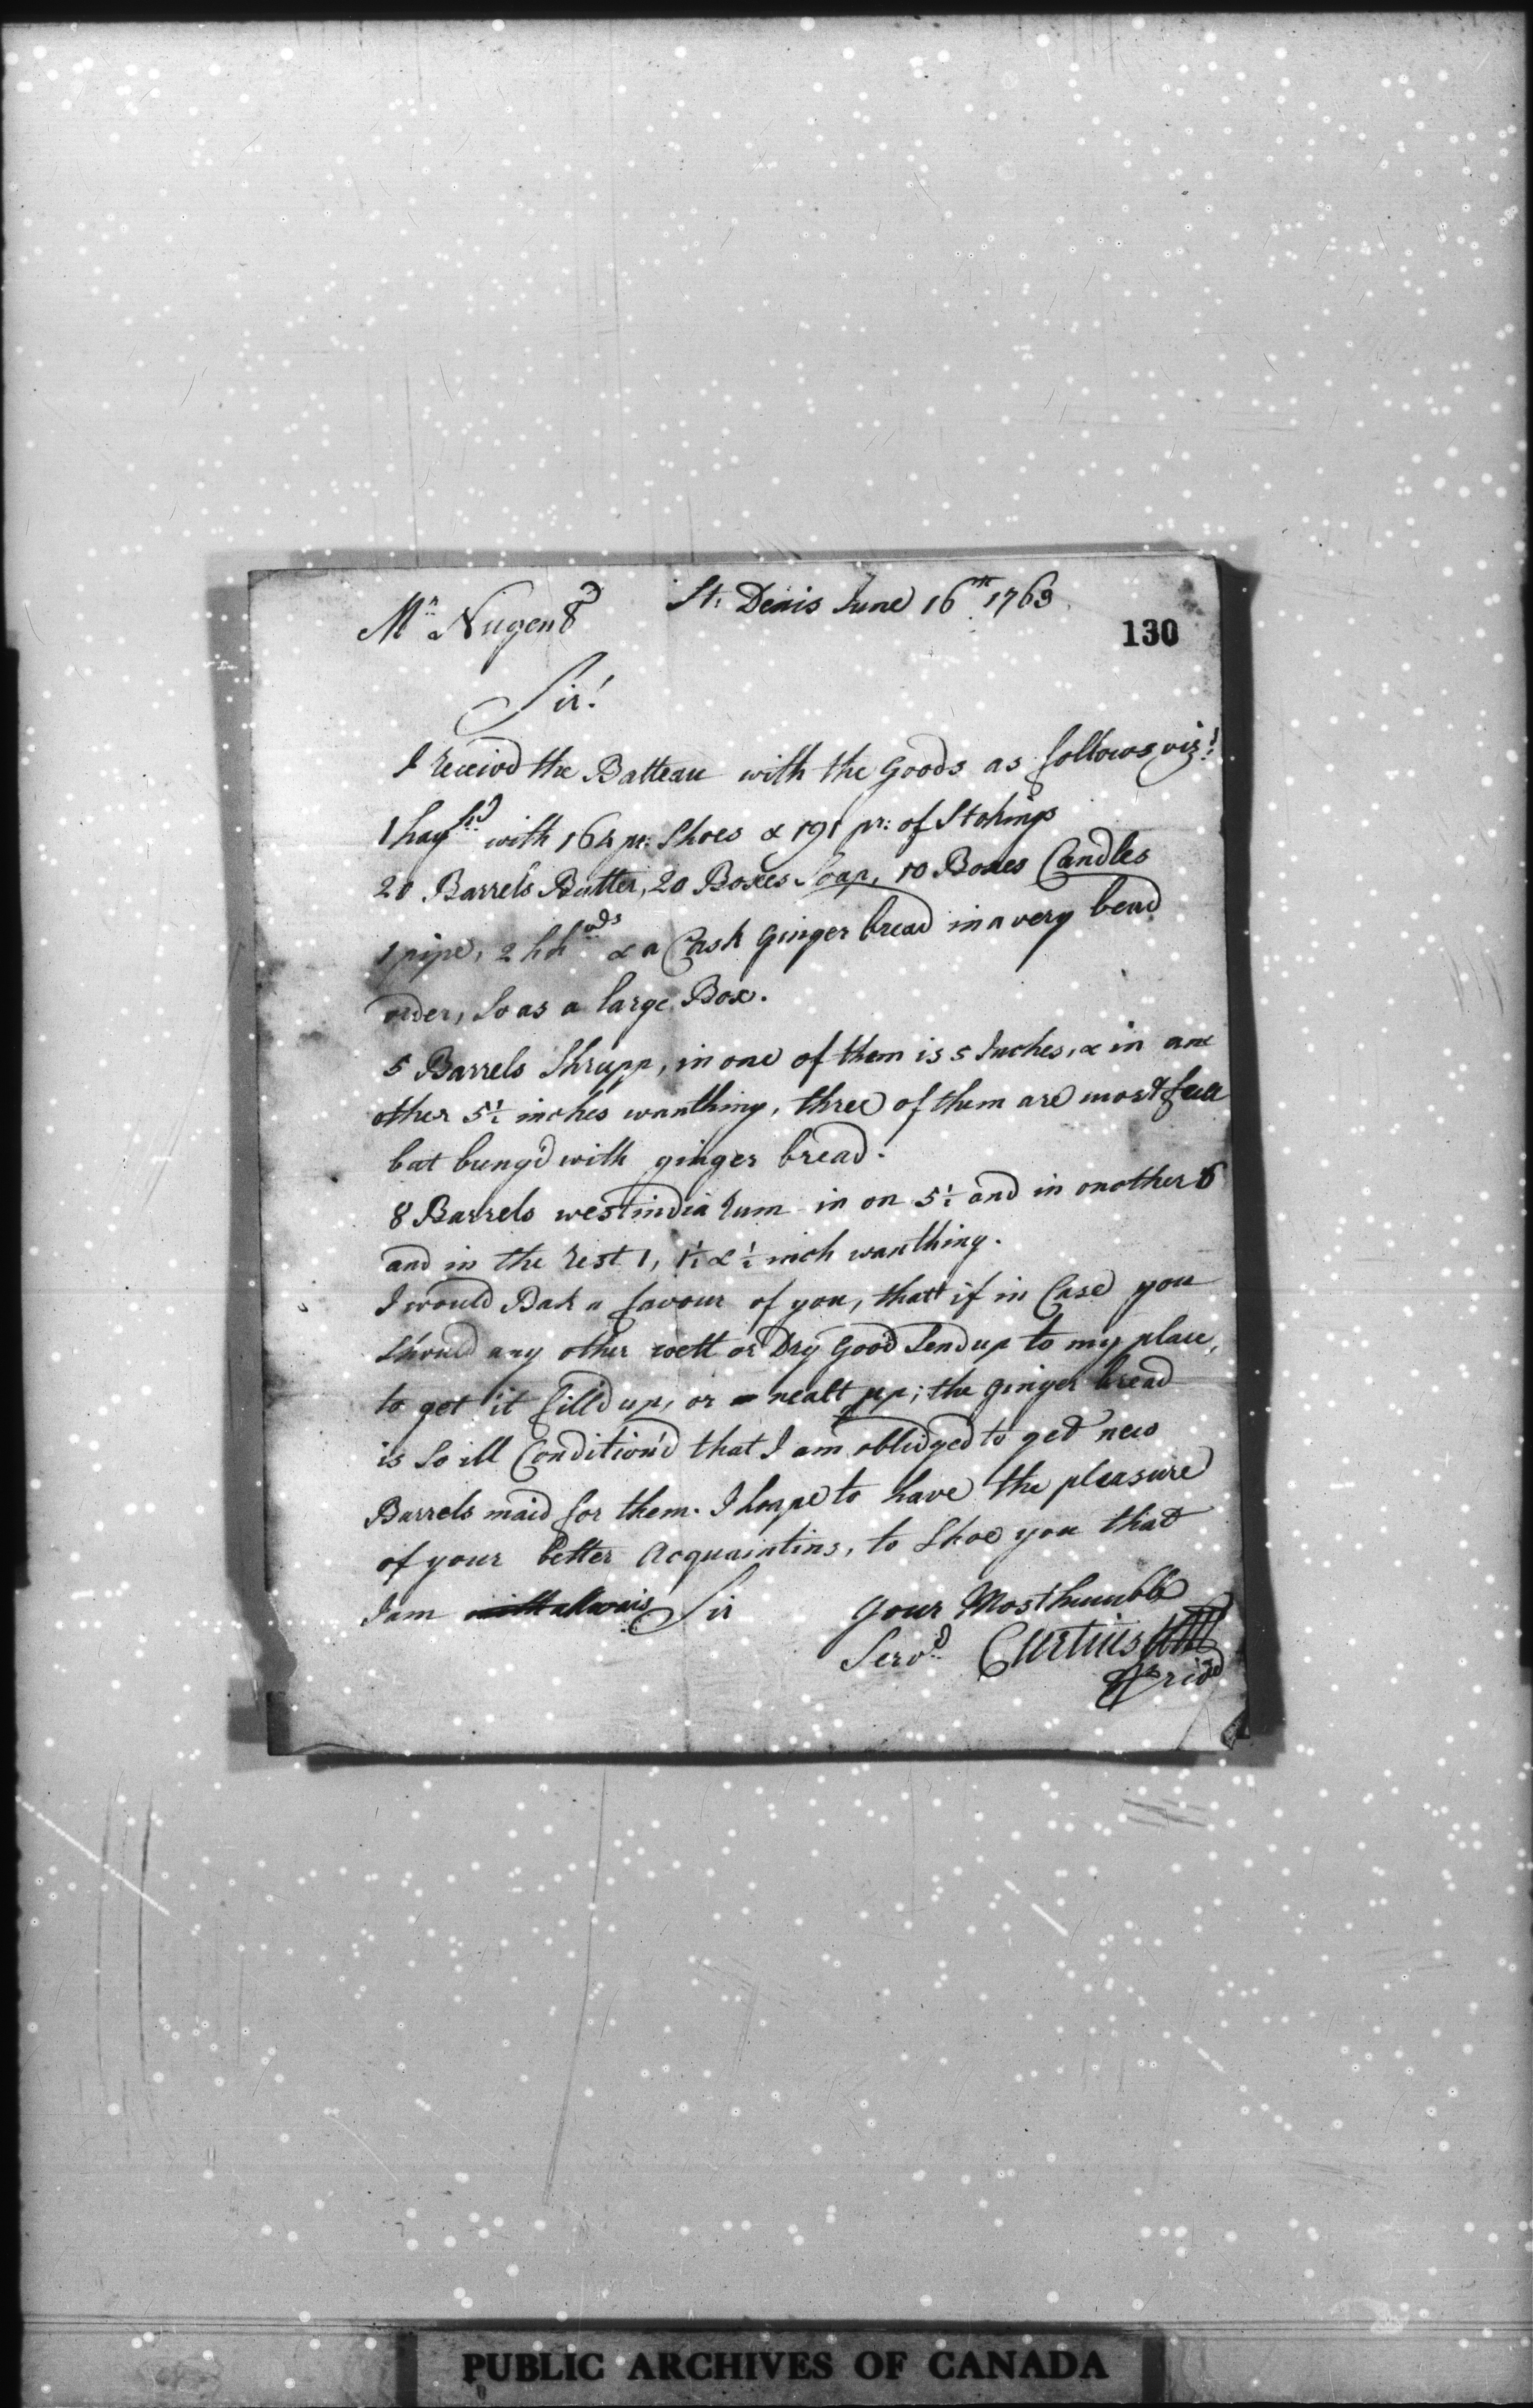 St: Denis June 16th 1763
Mr Nugent
130
Sir!
I receivd the Batteau with the Goods as follows viz!
1 hagshd with 164 pr: Shoes & 191 pr: of Stokings
20 Barrels Butter, 20 Boxes Soap, 10 Boxes Candles
1 pipe, 2 hhods & a Cask Ginger bread in a very bead
order, so as a large Box.
5 Barrels Shrupp, in one of them is 5 Inches, & in ane
other 5½ inches wanthing, three of them are most full
bat bung'd with ginger bread.
8 Barrels westindia Rum in on 5½ and in onother 6
and in the rest 1, 1½ & ½ inch wanthing.
I would Bak a favour of you, thatt if in Case you
should any other wett or Dry Good Send up to my place,
to get it filld up, or nealt up; the ginger bread
is so ill Condition'd that I am oblidged to get new
Barrels maid for them. I hoape to have the pleasure
of your better Acquaintins, to Shoe you that
I am Sir your Most humble
Servt Curtius